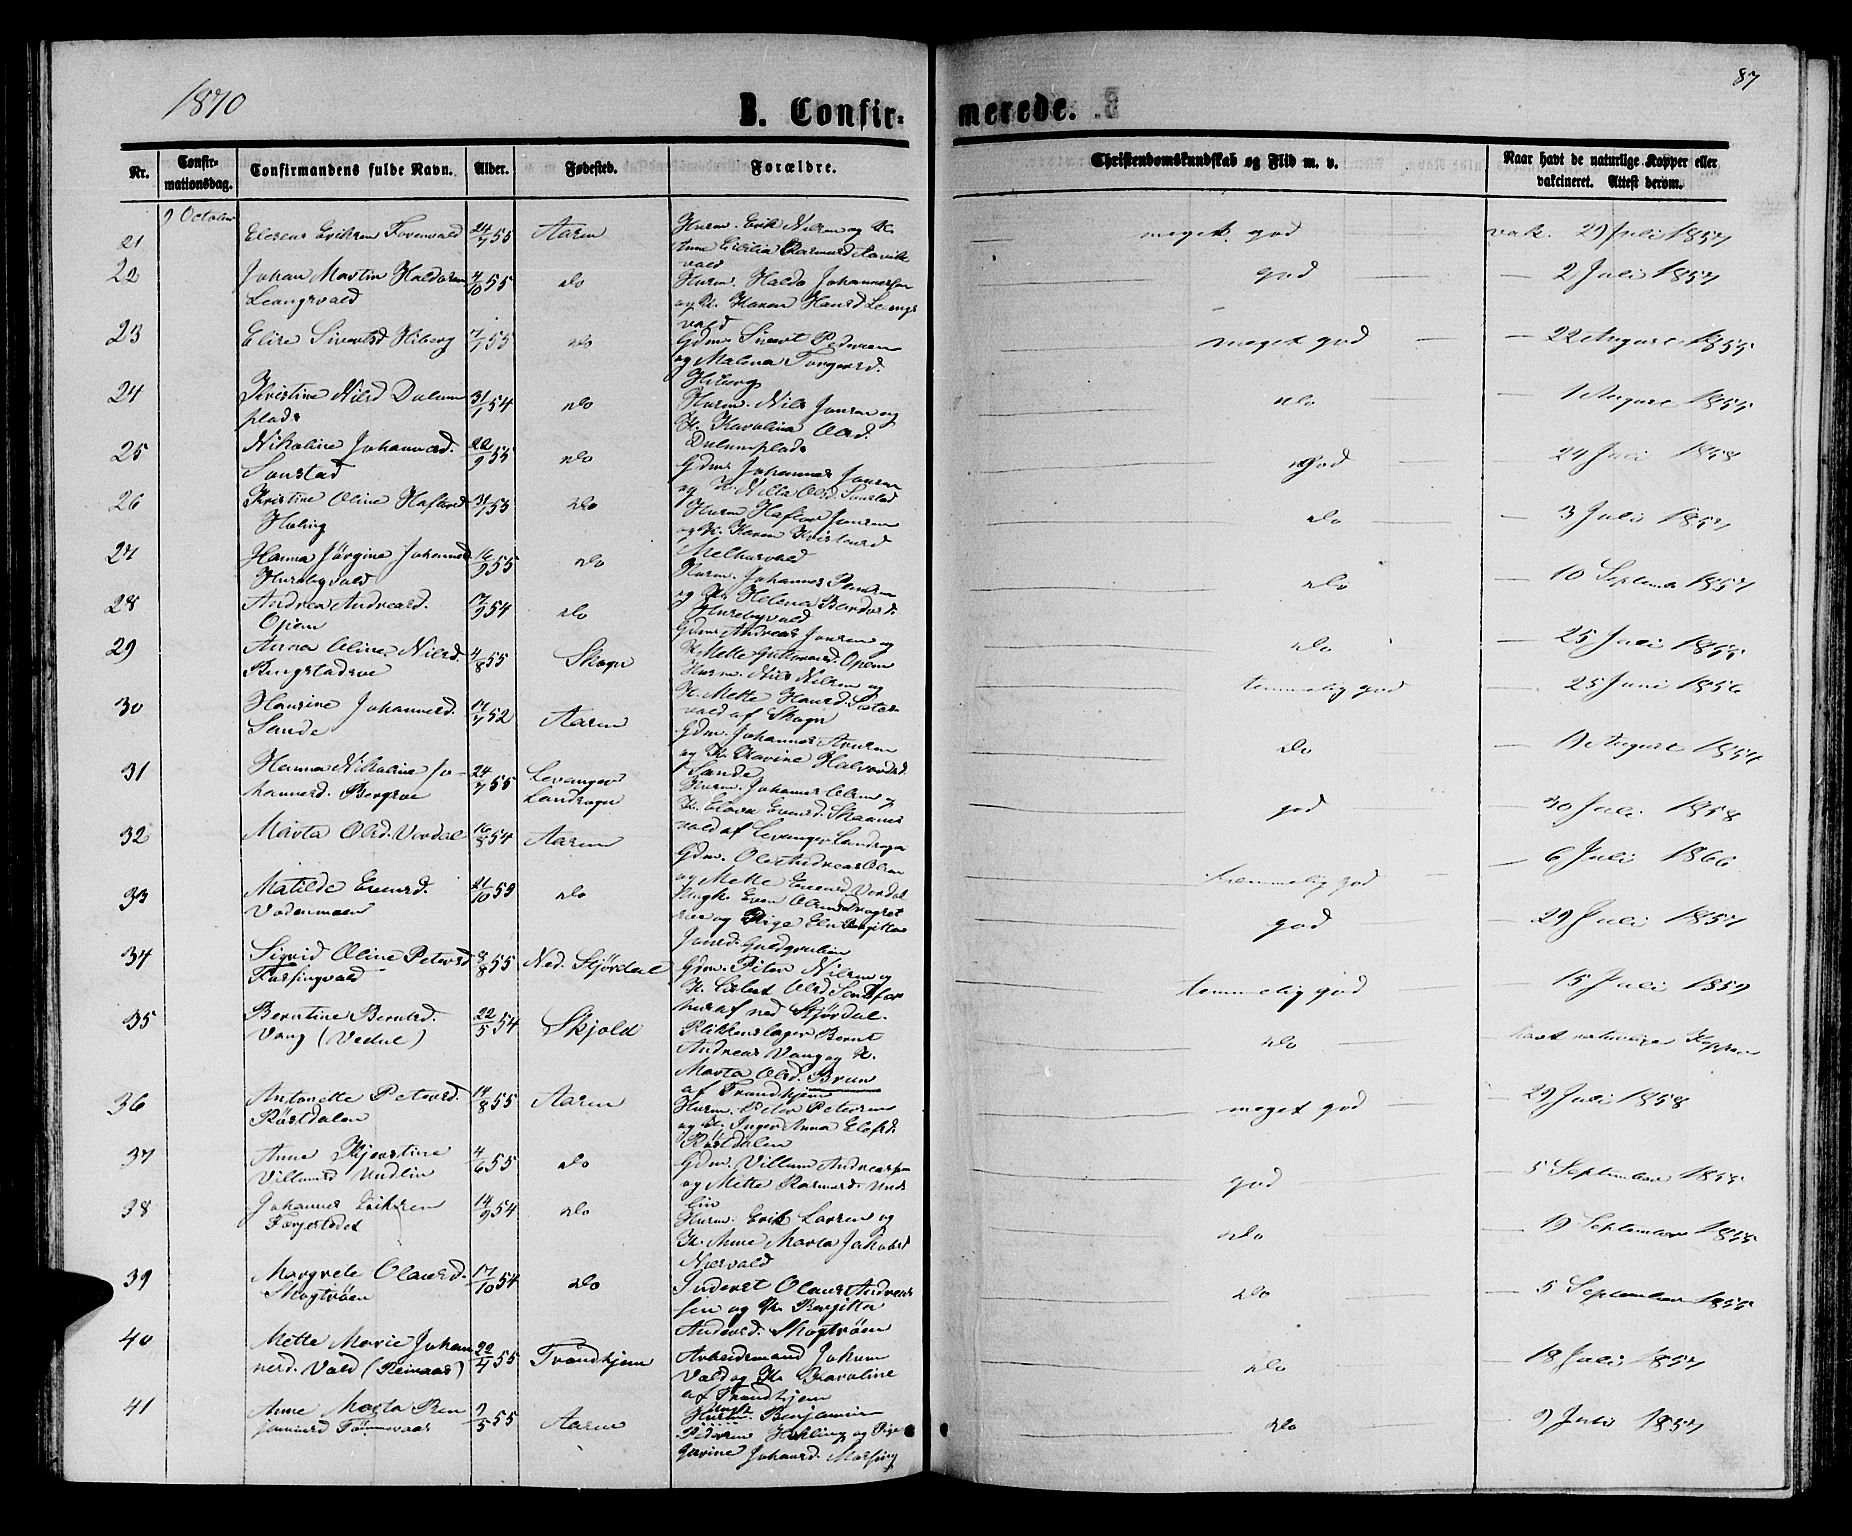 1870
87
B. Confir=
merede.
Nr.
Confir-
mationsdag.
Confirmandens fulde Navn.
Alder.
Fødested.
Forældre.
Christendomskundskab og Flid m. v.
Naar havt de naturlige Kopper eller
vakcineret. Attest derom.
9 October
21
Eriksen
24/7 55
Aasen
Husm. Erik Nilsen og K.
meget god
vak. 29 Juli 1857
22
Johan Martin Haldosen
Leangsvald
4/10 55
do
Husm. Haldo Johannessen
og K. Karen Hansd Leangs
vald
god
2 Juli 1857
23
Elise Sivertsd Hiberg
7/7 55
do
Gdm. Sivert Pedersen
og Malena Torgersd.
Hiberg
meget god
22 August 1855
24
Kristine Nilsd Dalum
plads
31/7 54
do
Husm. Nils Jonsen og
K. Karolina Olsd.
Dalumplads
do
1 August 1855
25
Nikoline Johannesd.
Sonstad
22/9 55
do
Gdm. Johannes Jonsen
og K. Nilla Olsd. Sonstad
god
24 Juli 1858
26
Kristine Oline Haftorsd
do
Husm Haftor Jonsen
og K. Karen
do
3 Juli 1857
27
Hanna Jørgine Johannesd
Husebyvald
16/9 55
do
Husm. Johannes
og K. Helena
Husebyvald
do
10 September 1857
28
Andrea Andreasd.
Opem
17/9 54
do
Gdm. Andreas Jonsen og
K. Mette Guttormsd. Opem
do
25 Juli 1855
29
Anna Oline Nilsd.
Ringstadsve
4/8 55
Skogn
Husm. Nils Nilsen og
K. Mette Hansd. Sæter
vald af Skogn
temmelig god
25 Juni 1856
30
Hansine Johannesd.
Sande
17/7 52
Aasen
Gdm. Johannes
og K. Halvorsd.
Sande
do
9 August 1854
31
Hanna Nikoline Jo-
hannesd. Bergsve
24/7 55
Levanger
Landsogn
Husm. Johannes Olsen og
K. Evensd. Skaanes
vald af Levanger Landsogn
god
30 Juli 1858
32
Marta Olsd. Vordal
16/8 54
Aasen
Gdm. Ole Andreas Olsen
og Mette Evensd Vordal
temmelig god
6 Juli 1866
33
Matilde Evensd.
Vodenmoen
21/10 55
do
Ungk. Even Olsen
og Pige Eli Birgitta
Jonsd. Guldgrubin
god
29 Juli 1857
34
Sigrid Oline Petersd
8/8 55
Ned. Stjørdal
Gdm. Peter Nilsen og
K. Olsd
af ned Stjørdal.
temmelig god
15 Juli 1859
35
Berntine Berntsd.
Vang (Vedul)
22/5 54
Skjold
Blikkenslager Bernt
Andreas Vang og K.
Marta Olsd. Brun
af Trondhjem
do
havt naturlige Kopper
36
Antonette Petersd.
Røstdalen
14/8 55
Aasen
Husm. Peter Petersen
og K. Inger Anna Elefsd.
Røstdalen
meget god
29 Juli 1858
37
Anne Kjerstine
Villumsd Undlin
4/6 55
do
Gdm. Villum Andreassen
og Mette Rasmusd. Und
lin
god
5 September 1855
38
Johannes Eriksen
Færjestedet
14/9 54
do
Husm. Erik Larsen og
K. Anne Marta Jakobsd
do
19 September 1855
39
Margrete Olausd.
Skogtrøen
17/10 54
do
Inderst Olaus Andreas
sen og K. Birgitta
Andersd. Skogtrøen
do
5 September 1855
40
Mette Marie Johan
nesd. Vald (Reinaas)
22/4 55
Trondhjem
Arbeidsmand Johan
Vald og K. Karoline
af Trondhjem
do
18 Juli 1857
41
Anne Marta Ben
jaminsd Tømmeraas
9/5 55
Aasen
Ungk.
Husm. Benjamin
Pedersen Hokling og Pige
Gurine Johansd. Mossing
do
9 Juli 1857